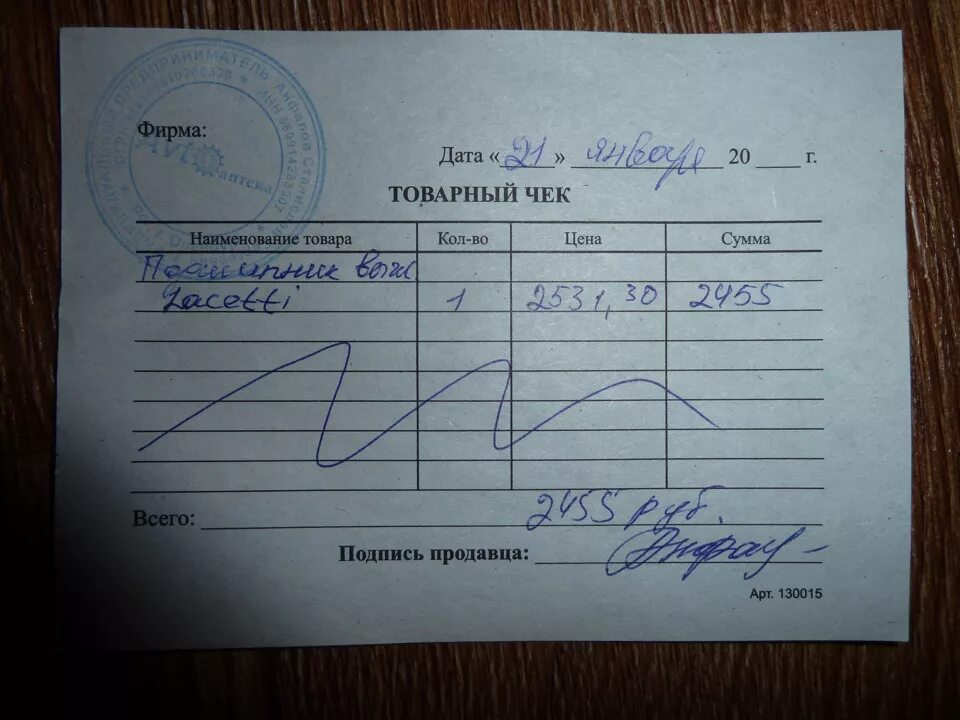 ИНДИВИДУАЛЬНЫЙ ПРЕДПРИНИМАТЕЛЬ Анфалов Станислав
Avto
аптека
Фирма:
Дата « 21 » января 20 г.
ТОВАРНЫЙ ЧЕК
Наименование товара Кол-во Цена Сумма
Подшипник выж
Lacetti 1 2531,30 2455
Всего: 2455 руб.
Подпись продавца:
Арт. 130015